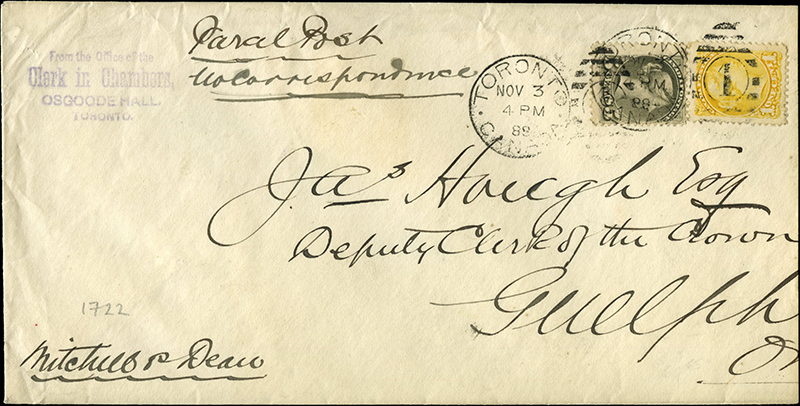 From the Office of the
Clerk in Chambers,
OSGOODE HALL,
TORONTO.
Parcel Post
No Correspondence
TORONTO
NOV 3
4 PM
89
CANADA
TORONTO
PM
89
Jas Hough Esq
Deputy Clerk of the Crown
Guelph
On
1722
Mitchell vs Dean